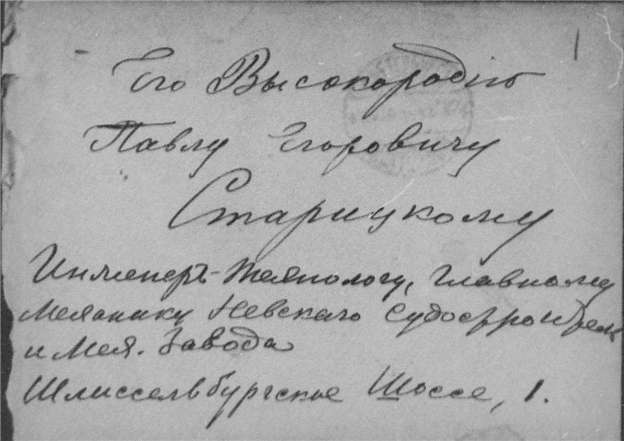 1
Его Высокородію
Павлу Егоровичу
Старицкому
Инженеръ-Технологу, Главному
Механику Невскаго Судостроитель
и Мех. Завода
Шлиссельбургское Шоссе, 1.